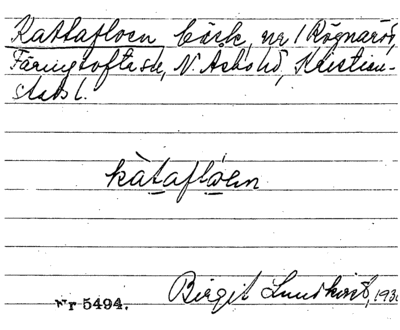 Kattafloen bäck, nr 1 Rögnaröd,
Färingtofta sn, N. Åsbo hd, Kristian-
stads l.
kàtaflóen
Nr 5494.
Birgit Lundkvist, 193